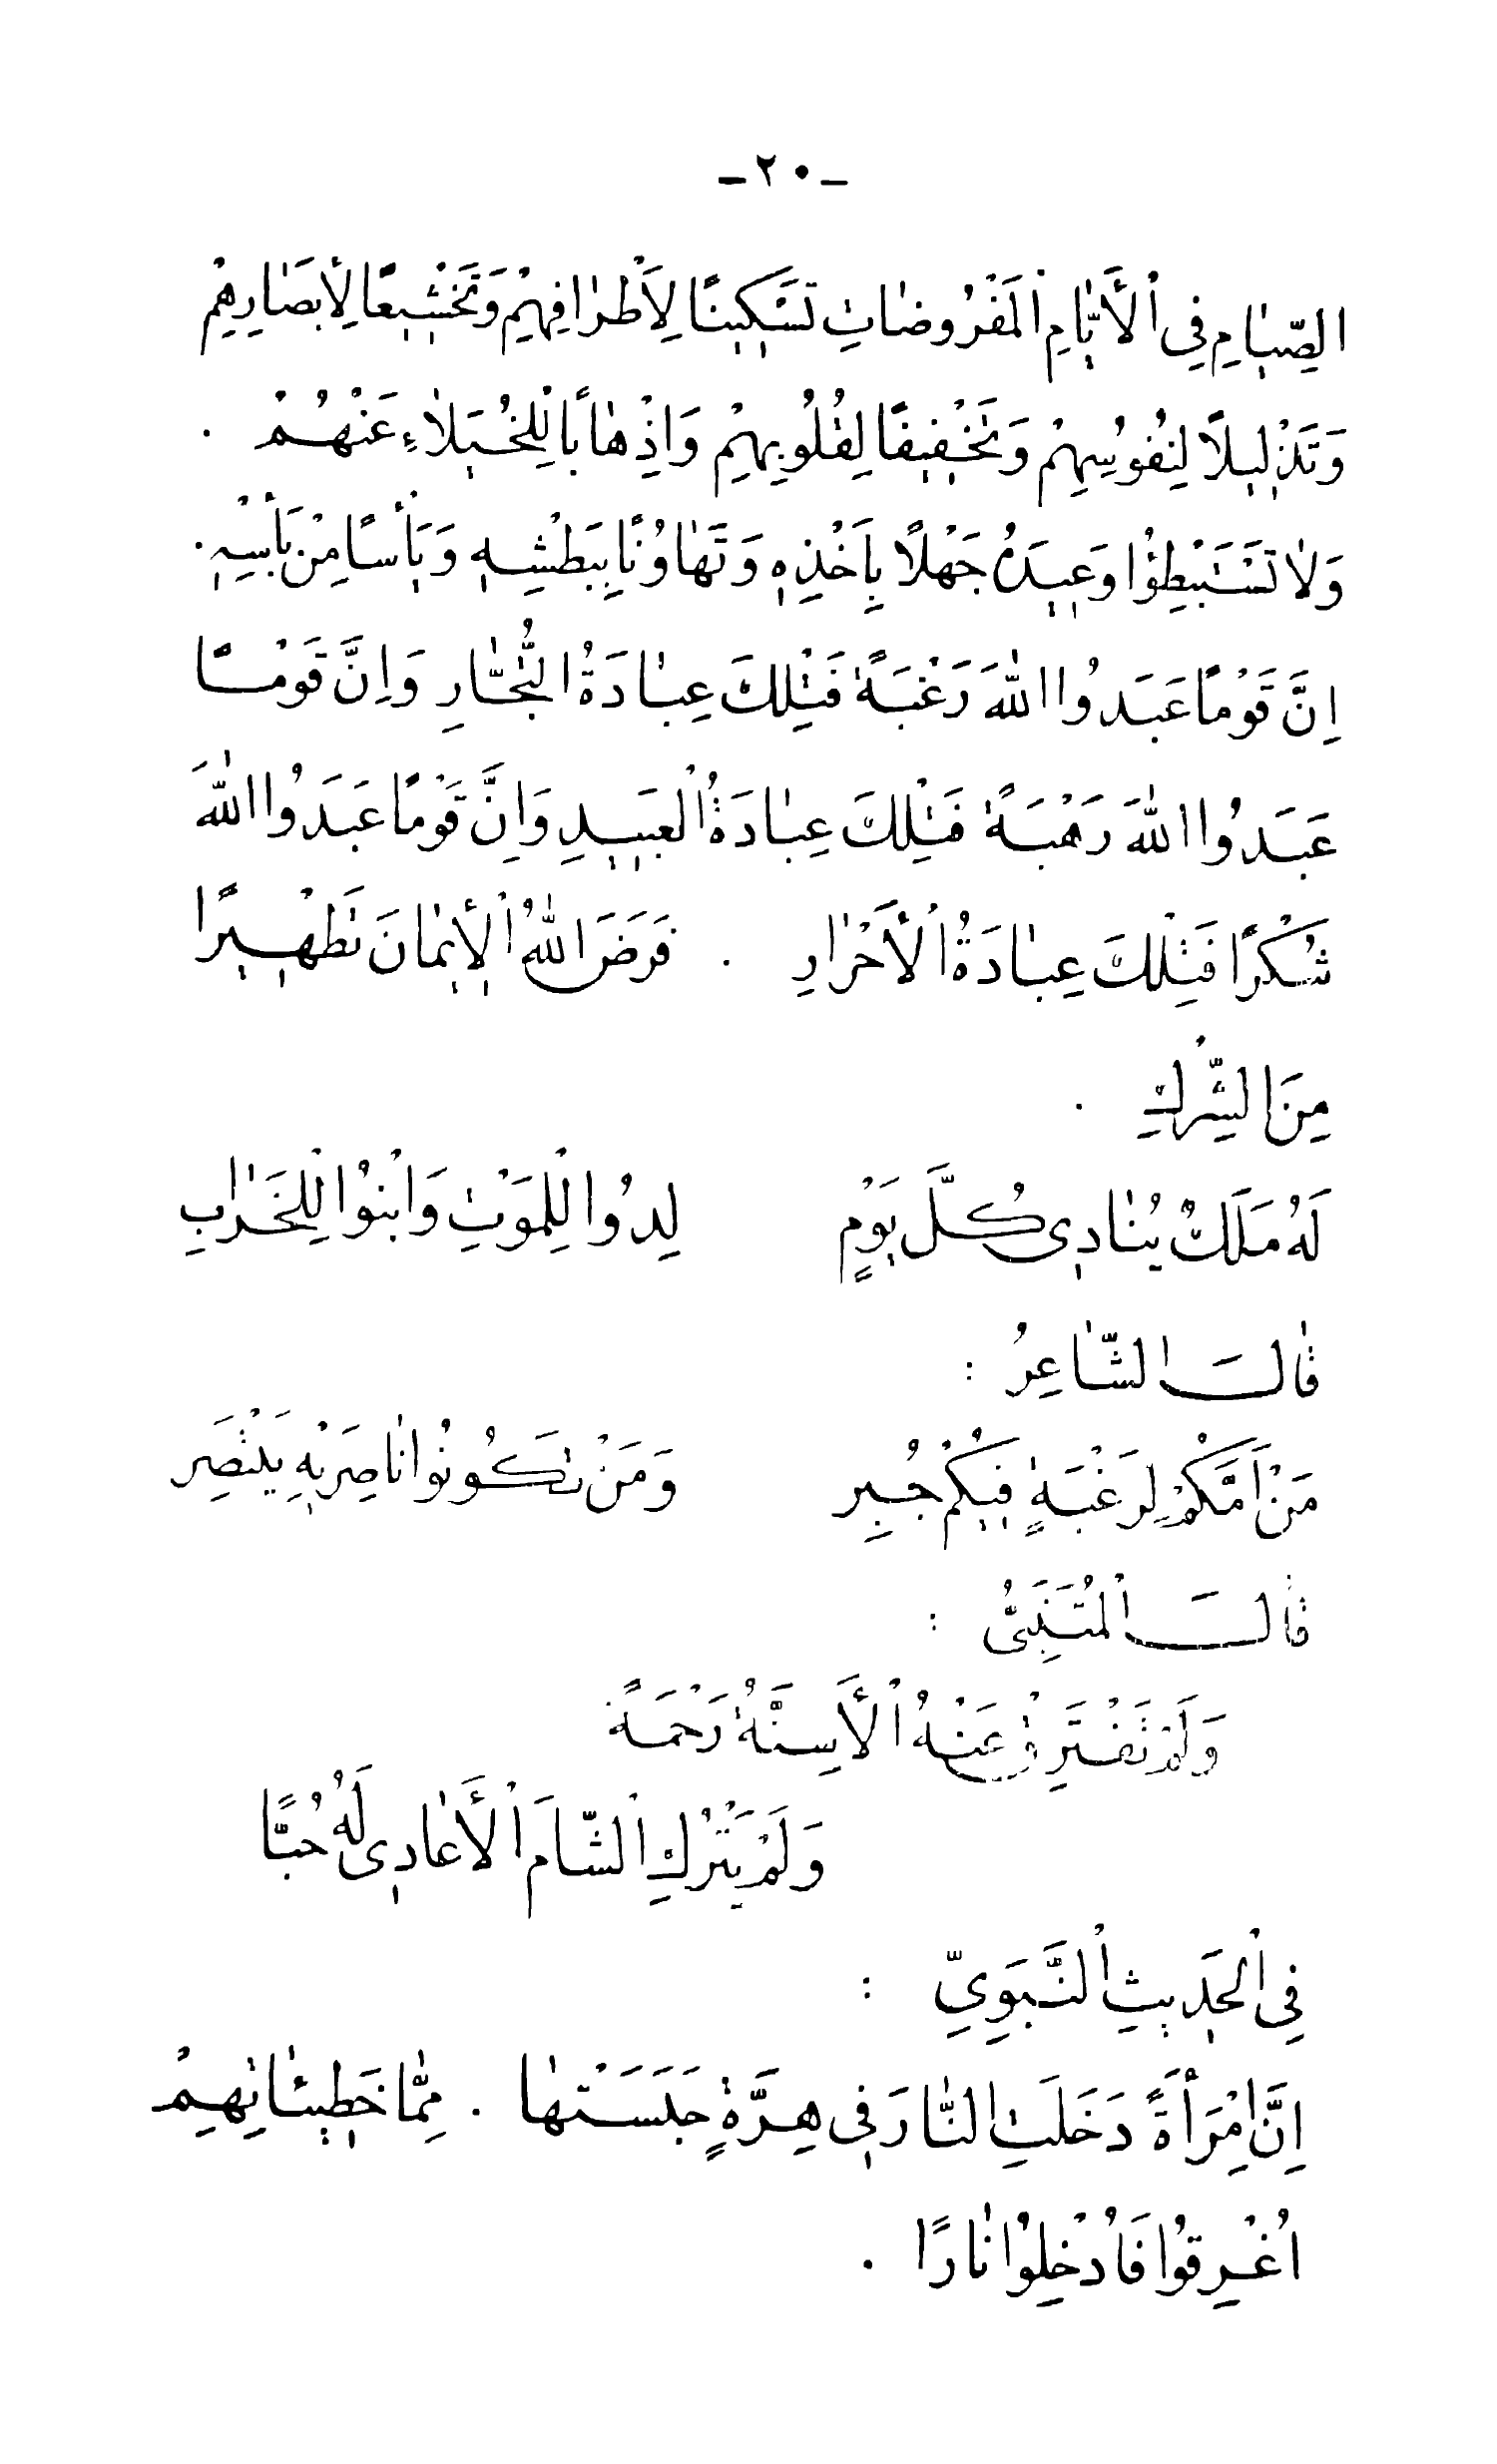 ـ ٢٠ ـ
الصِّيٰامِ فِي اْلأَيّٰامِ اْلمَفْرُوضٰاتِ تَسْكِينًا لِأَطْرٰافِهِمْ وَتَخْشِيعًا لِأَبْصَارِهِمْ
وَتَذْلِيلًا لِنُفُوسِهِمْ وَتَخْفِيفًا لِقُلُوبِهِمْ وَاِذْهٰابًا لِلْخُيَلٰاءِ عَنْهُمْ .
وَلٰا تَسْتَبْطِؤُا وَعِيدَهُ جَهْلًا بِاَخْذِهِ وَتَهٰاوُنًا بِبَطْشِهِ وَيَأْسًا مِنْ بَأْسِهِ .
اِنَّ قَوْمًا عَبَدُوا اللّٰهَ رَغْبَةً فَتِلْكَ عِبٰادَةُ التُّجّٰارِ وَاِنَّ قَوْمًا
عَبَدُوا اللّٰهَ رَهْبَةً فَتِلْكَ عِبٰادَةُ اْلعَبِيدِ وَاِنَّ قَوْمًا عَبَدُوا اللّٰهَ
شُكْرًا فَتِلْكَ عِبٰادَةُ اْلأَحْرٰارِ . فَرَضَ اللّٰهُ اْلإيمٰانَ تَطْهِيرًا
مِنَ الشِّرْكِ .
لَهُ مَلَكٌ يُنٰادِي كُلَّ يَوْمٍ لِدُوا لِلْمَوْتِ وَابْنُوا لِلْخَرٰابِ
قٰالَ الشّٰاعِرُ :
مَنْ اَمَّكُمْ لِرَغْبَةٍ فِيكُمْ جُبِر وَمَنْ تَكُونُوا نٰاصِرَيْهِ يَنْتَصِر
قٰالَ اْلمُتَنَبِّىُ :
وَلَمْ تَفْتَرِقْ عَنْهُ اْلأَسِنَّةُ رَحْمَةً
وَلَمْ يَتْرُكِ الشّٰامَ اْلأَعٰادِي لَهُ حُبًّا
فِي اْلحَدِيثِ النَّبَوِيِّ :
اِنَّ امْرَأَةً دَخَلَتِ النّٰارَ فِي هِرَّةٍ حَبَسَتْهٰا . مِمّٰا خَطِيئٰاتِهِمْ
اُغْرِقُوا فَاُدْخِلُوْا نٰارًا .